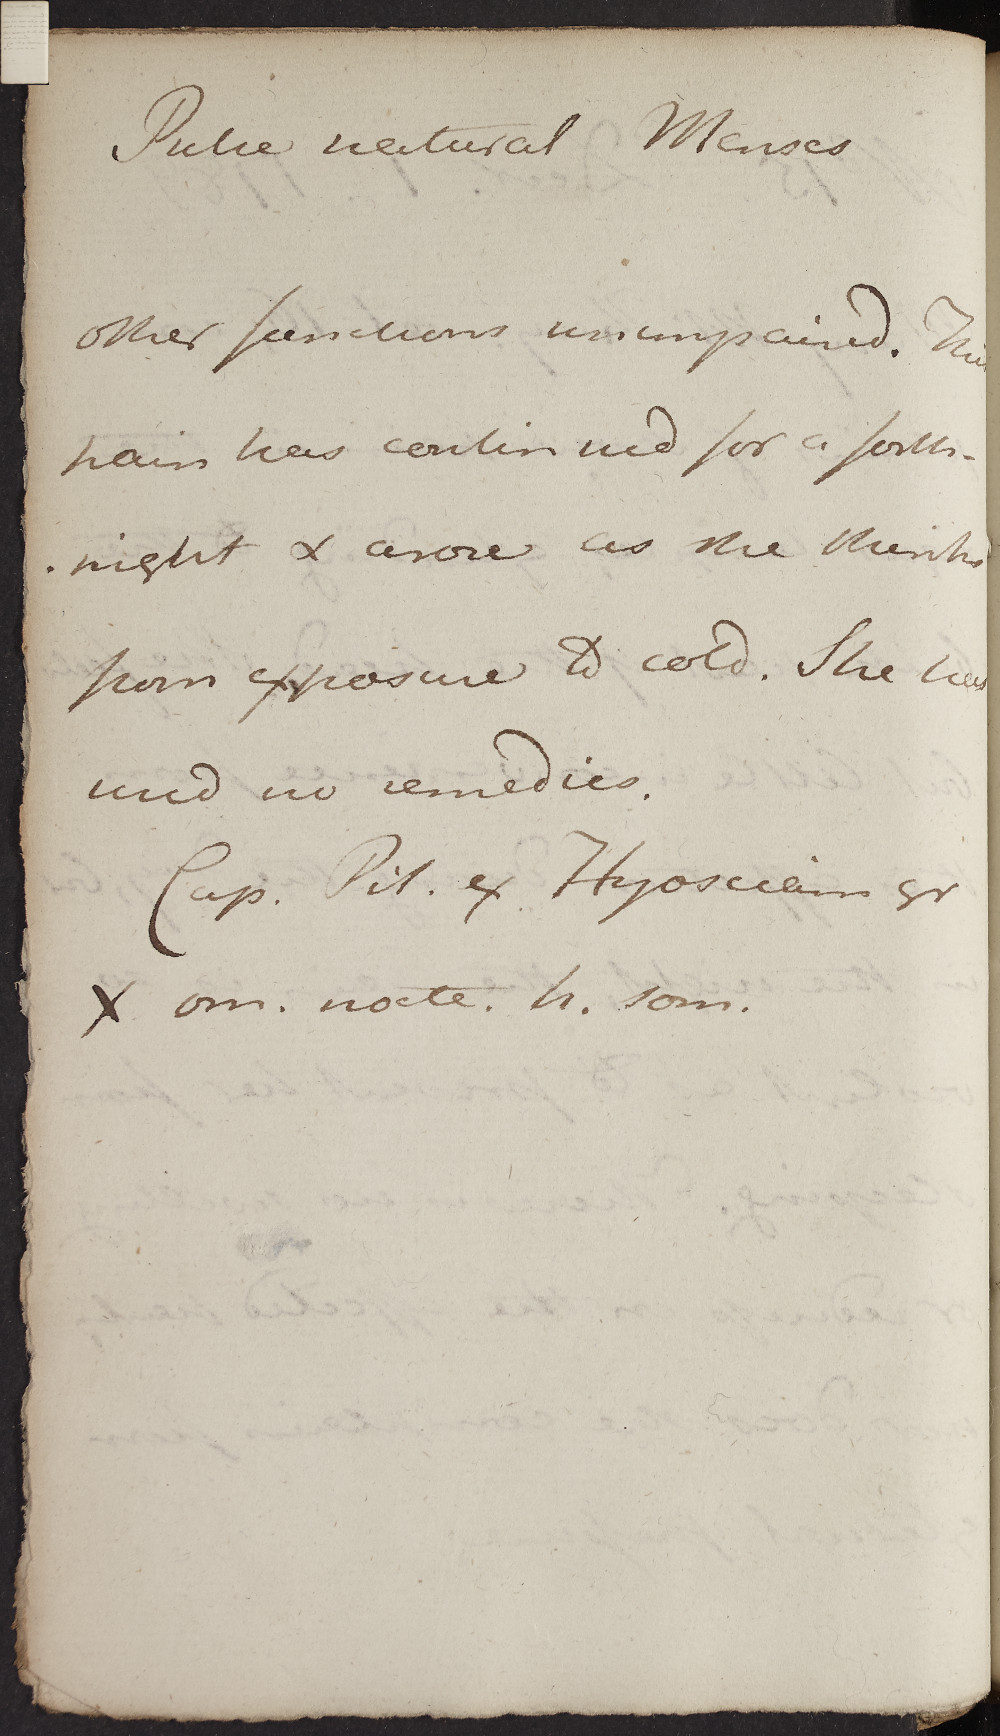 Pulse natural Menses
other functions unimpaired. This
pain has continued for a forth-
-night & arose as she thinks
from exposure to cold. She has
used no remedies.
Cap. Pil. ex Hyosciam gr
X om. nocte. h. som.